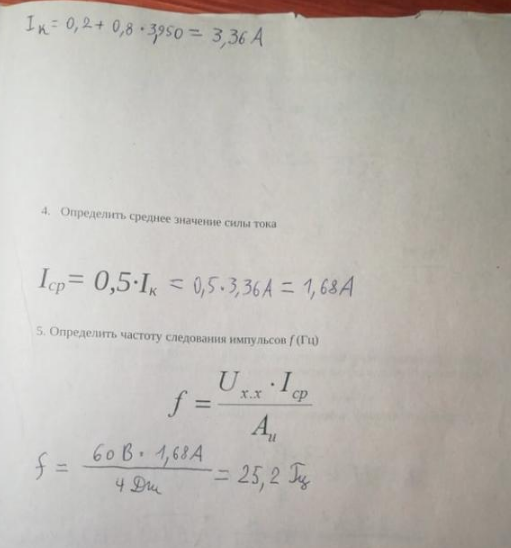 Iк = 0,2 + 0,8 · 3,950 = 3,36 А
4. Определить среднее значение силы тока
Iср = 0,5·Iк = 0,5 · 3,36А = 1,68А
5. Определить частоту следования импульсов f (Гц)
f = Uх.х · Iср / Aи
f = 60 В · 1,68А / 4 Дж = 25,2 Гц